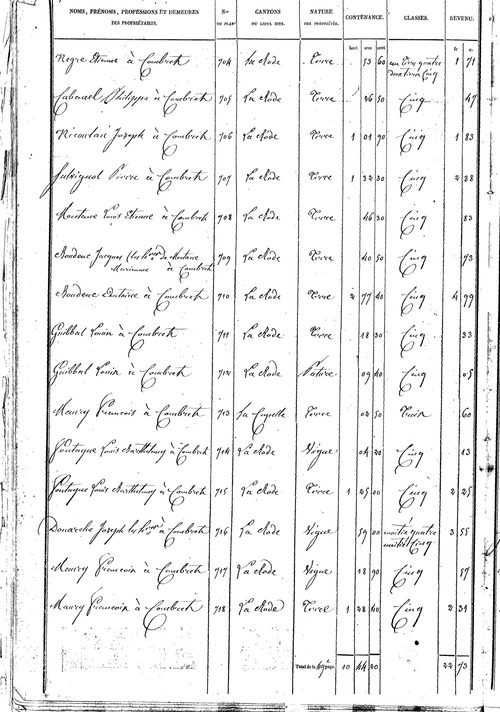 NOMS, PRÉNOMS, PROFESSIONS ET DEMEURES DES PROPRIÉTAIRES. Nos DU PLAN CANTONS OU LIEUX DITS. NATURE DES PROPRIÉTÉS. CONTENANCE. CLASSES. REVENU.
Negre Etienne à Combret 704 La Rode Terre 53 60 un tiers quatre 1 71
deux tiers Cinq
Cabanel Philippe à Combret 705 La Rode Terre 26 50 Cinq 47
Joseph à Combret 706 La Rode Terre 1 01 90 Cinq 1 83
Pierre à Combret 707 La Rode Terre 1 32 30 Cinq 2 38
Louis Etienne à Combret 708 La Rode Terre 46 30 Cinq 83
Jacques 709 La Rode Terre 40 50 Cinq 73
à Combret
à Combret 710 La Rode Terre 2 77 40 Cinq 4 99
Guibbal Louis à Combret 711 La Rode Terre 18 30 Cinq 33
Guibbal Louis à Combret 712 La Rode Pature 09 40 Cinq 05
Maury Francois à Combret 713 Terre 02 50 Trois 60
Louis Barthelemy à Combret 714 La Rode Vigne 04 20 Cinq 13
Louis Barthelemy à Combret 715 La Rode Terre 1 25 00 Cinq 2 25
Joseph à Combret 716 La Rode Vigne 59 00 moitié quatre 3 55
moitié Cinq
Maury Francois à Combret 717 La Rode Vigne 18 90 Cinq 57
Maury Francois à Combret 718 La Rode Terre 1 28 40 Cinq 2 31
Total de la page 10 44 20 22 73